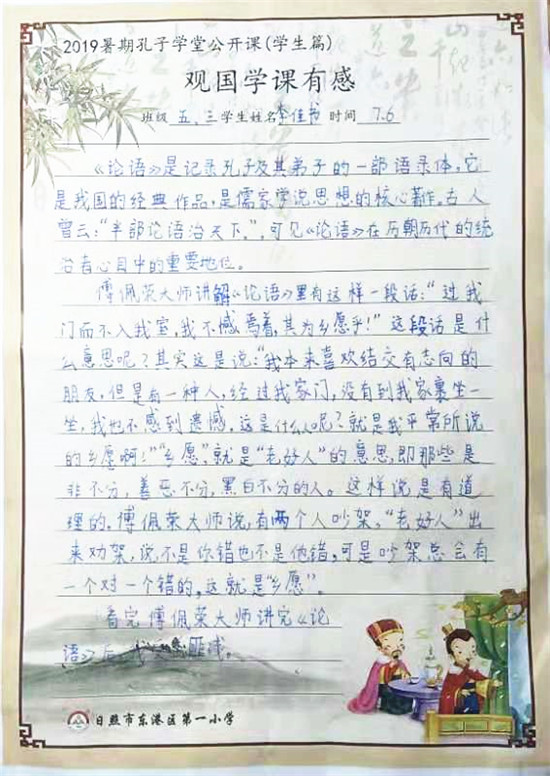 2019暑期孔子学堂公开课(学生篇)
观国学课有感
班级 五.三 学生姓名 李佳书 时间 7.6
《论语》是记录孔子及其弟子的一部语录体,它
是我国的经典作品,是儒家学说思想的核心著作。古人
曾云:“半部论语治天下。”,可见《论语》在历朝历代的统
治者心目中的重要地位。
傅佩荣大师讲解《论语》里有这样一段话:“过我
门而不入我室,我不憾焉着,其为乡愿乎!”这段话是什
么意思呢?其实这是说:“我本来喜欢结交有志向的
朋友,但是有一种人,经过我家门,没有到我家裹坐一
坐,我也不感到遗憾,这是什么人呢?就是我平常所说
的乡愿啊!”“乡愿”,就是“老好人”的意思,即那些是
非不分,善恶不分,黑白不分的人。这样说是有道
理的。傅佩荣大师说,有两个人吵架。“老好人”出
来劝架,说不是你错也不是他错,可是吵架总会有
一个对一个错的,这就是“乡愿”。
看完傅佩荣大师讲完《论
语》后,我匪浅。
日照市东港区第一小学